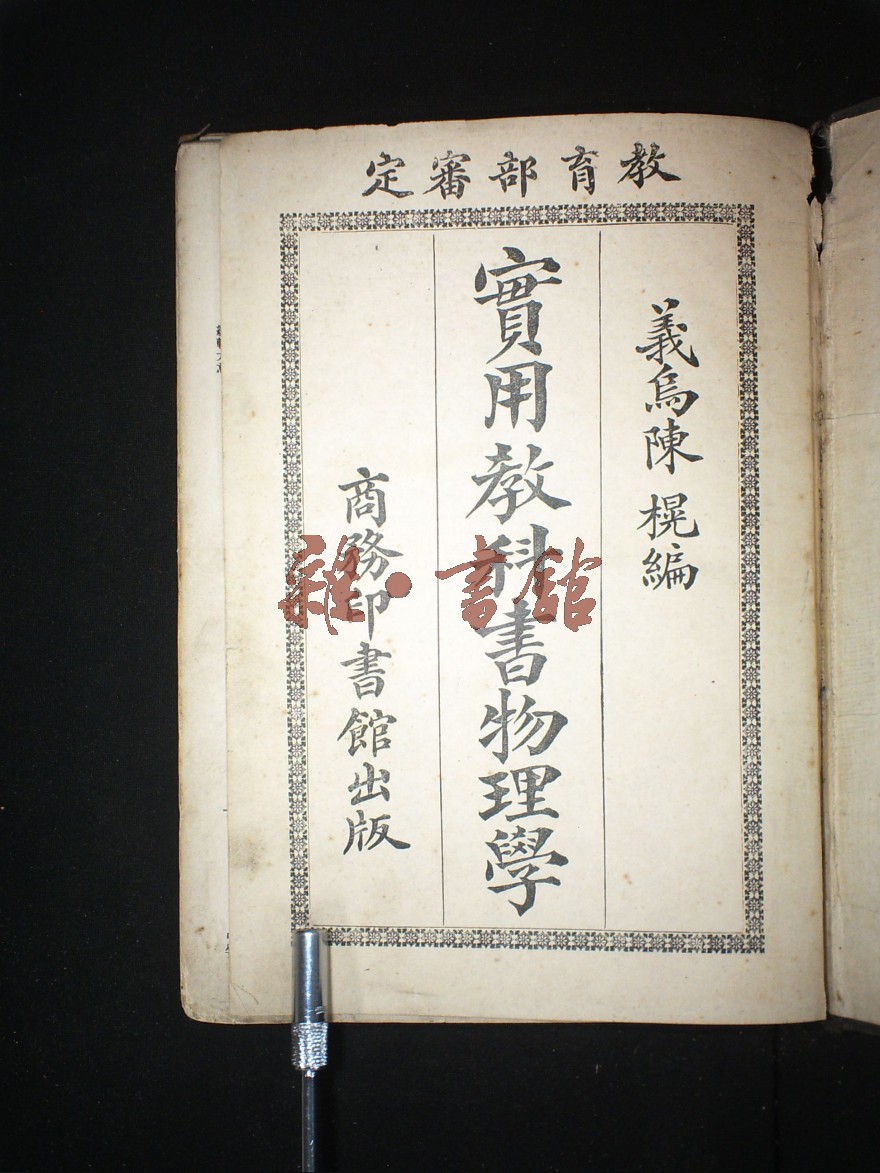 教育部審定
義烏陳榥編
實用教科書物理學
商務印書館出版
雜·書館